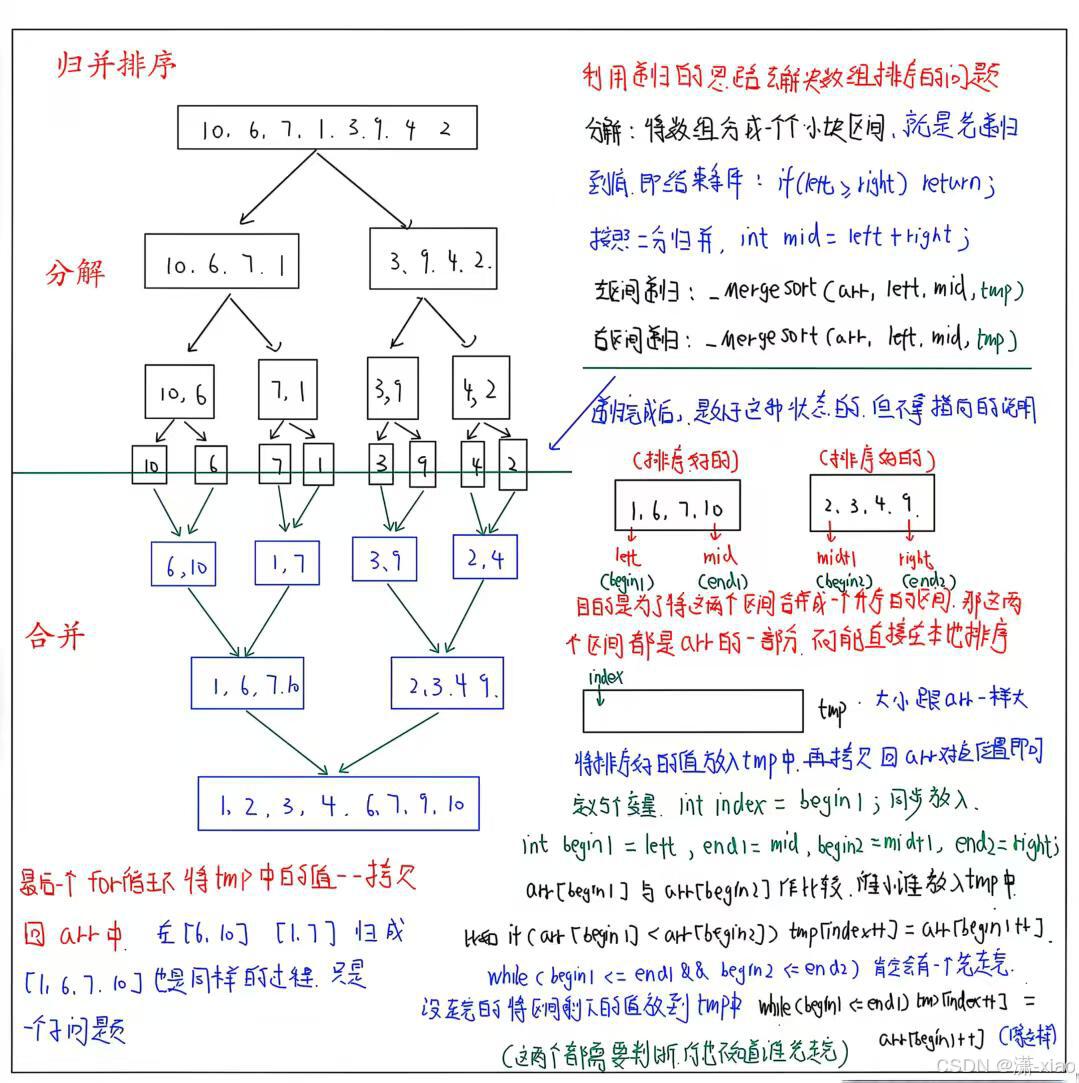 归并排序
10、6、7、1、3、9、4 2
分解
10、6、7、1
3、9、4、2
10,6
7,1
3,9
4,2
10
6
7
1
3
9
4
2
6,10
1,7
3,9
2,4
合并
1,6,7,10
2,3,4 9.
1,2,3,4、6,7,9,10
最后一个for循环将tmp中的值一一拷贝
回arr中. 在[6,10] [1,7] 归成
[1,6,7,10]也是同样的过程. 只是
一个子问题
利用递归的思路去解决数组排序的问题
分解:将数组分成一个个小块区间、就是先递归
到底.即结束条件:if(left≥right) return;
按照二分归并, int mid=left+right;
左区间递归:_MergeSort(arr, left, mid, tmp)
右区间递归:_MergeSort(arr, left, mid, tmp)
递归完成后,是处于这种状态的.但不是指向的说明
(排序好的)
(排序好的)
1,6,7,10
2,3,4,9.
left
mid
mid+1
right
(begin1)
(end1)
(begin2)
(end2)
目的是为了将这两个区间合并成一个升序的区间.那这两
个区间都是arr的一部分.不可能直接在本地排序
index
tmp. 大小跟arr一样大
将排序好的值放入tmp中.再拷贝回arr对应位置即可
定义5个变量. int index = begin1; 同步放入.
int begin1=left, end1=mid, begin2=mid+1, end2=right;
arr[begin1] 与 arr[begin2] 作比较.谁小谁放入tmp中.
比如 if(arr[begin1]<arr[begin2]) tmp[index++]=arr[begin1++].
while(begin1<=end1&&begin2<=end2) 肯定会有一个先走完.
没走完的将区间剩下的值放到tmp中 while(begin1<=end1) tmp[index++] =
arr[begin1++] (像这样)
(这两个都需要判断.你也不知道谁先走完)
CSDN @潇-xiao